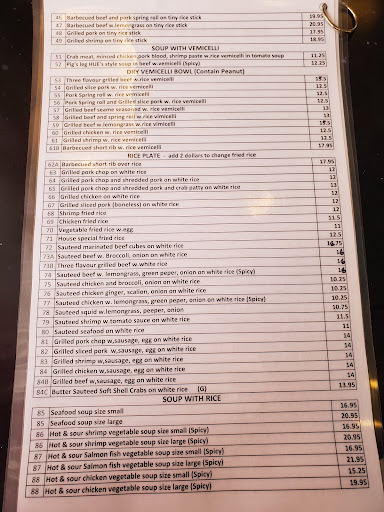 46 Barbecued beef and pork spring roll on tiny rice stick 19.95
47 Barbecued beef w.lemongrass on tiny rice stick 20.95
48 Grilled pork on tiny rice stick 17.95
49 Grilled shrimp on tiny rice stick 18.95
SOUP WITH VEMICELLI
51 Crab meat, minced chicken,pork blood, shrimp paste w.rice vemicelli in tomato soup 11.25
52 Pig's leg HUE's style soup in beef w.vemicelli (Spicy) 12.25
DRY VEMICELLI BOWL (Contain Peanut)
53 Three flavour grilled beef w.rice vemicelli
54 Grilled slice pork w. rice vemicelli 12.5
55 Pork Spring roll w. rice vemicelli 12.5
56 Pork Spring roll and Grilled slice pork w. rice vemicelli 12.5
57 Grilled beef seame seasoned w. rice vemicelli 13
58 Grilled beef and spring roll w.rice vimicelli 13
59 Grilled beef w.lemongrass w.rice vimicelli
60 Grilled chicken w. rice vemicelli 12.5
61 Grilled shrimp w. rice vemicelli 12.5
61B Barbecued short rib w. rice vemicelli 17.95
RICE PLATE - add 2 dollars to change fried rice
62A Barbecued short rib over rice 17.95
63 Grilled pork chop on white rice 12
64 Grilled pork chop and shredded pork on white rice 12
65 Grilled pork chop and shredded pork and crab patty on white rice 13
66 Grilled chicken on white rice 12
67 Grilled sliced pork (boneless) on white rice 12
68 Shrimp fried rice 12
69 Chicken fried rice 11.5
70 Vegetable fried rice w.egg 11
71 House special fried rice 12.5
72 Sauteed marinated beef cubes on white rice
73A Sauteed beef w. Broccoli, onion on white rice
73B Three flavour grilled beef w.white rice
74 Sauteed beef w. lemongrass, green peper, onion on white rice (Spicy)
75 Sauteed chicken and broccoli, onion on white rice 10.25
76 Sauteed chicken ginger, scallion, onion on white rice 10.25
77 Sauteed chicken w. lemongrass, green peper, onion on white rice (Spicy) 10.25
78 Sauteed squid w.lemongrass, peeper, onion 10.75
79 Sauteed shrimp w.tomato sauce on white rice 11.5
80 Sauteed seafood on white rice 11
81 Grilled pork chop w,sausage, egg on white rice 14
82 Grilled sliced pork w,sausage, egg on white rice 14
83 Grilled shrimp w,sausage, egg on white rice 14
84 Grilled chicken w,sausage, egg on white rice 14
84B Grilled beef w,sausage, egg on white rice 14
84C Butter Sauteed Soft Shell Crabs on white rice (G) 13.95
SOUP WITH RICE
85 Seafood soup size small 16.95
85 Seafood soup size large 20.95
86 Hot & sour shrimp vegetable soup size small (Spicy) 16.95
86 Hot & sour shrimp vegetable soup size large (Spicy) 20.95
87 Hot & sour Salmon fish vegetable soup size small (Spicy) 16.95
87 Hot & sour Salmon fish vegetable soup size large (Spicy) 21.95
88 Hot & sour chicken vegetable soup size small (Spicy) 15.25
88 Hot & sour chicken vegetable soup size large (Spicy) 19.95